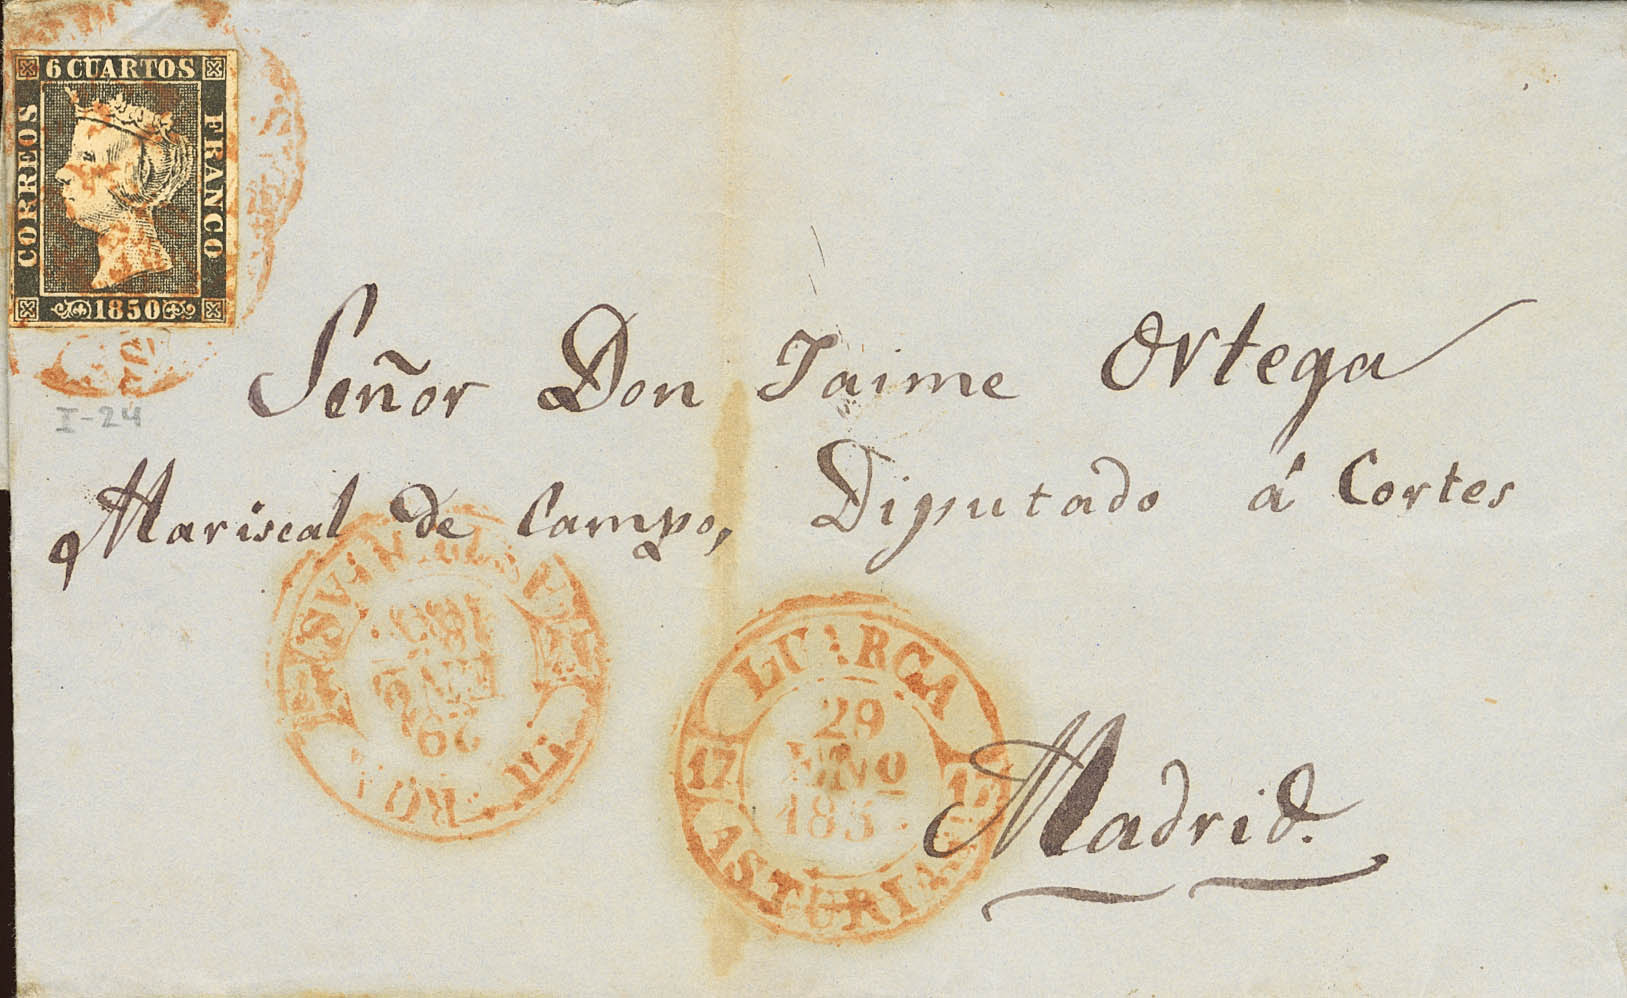 6 CUARTOS
CORREOS
FRANCO
1850
I-24
Señor Don Jaime Ortega
Mariscal de Campo, Diputado á Cortes
Madrid.
LUARCA
29
ENO
185
17
17
ASTURIAS